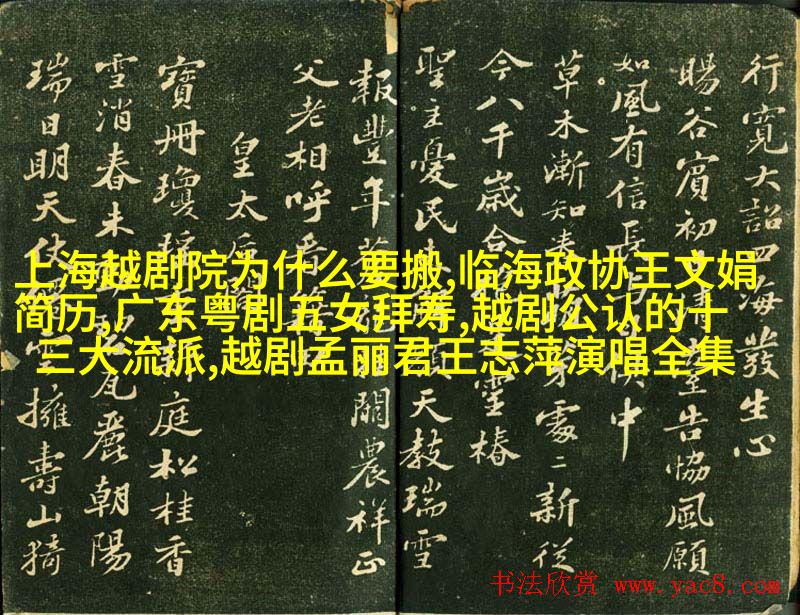 上海越剧院为什么要搬,临海政协王文娟
简历,广东粤剧五女拜寿,越剧公认的十
三大流派,越剧孟丽君王志萍演唱全集
行寬大詔四海發生心
暘谷賓初清臺告協風願
如風有信長中
草木漸知春芽處二新從
今八千歲合靈椿
聖主憂民天教瑞雪
報豐年蒼闕農祥正
父老相呼看
皇太后
寶冊瓊庭松桂香
雪消春未瓦麗朝陽
瑞日明天仗擁壽山猗
书法欣赏 www.yac8.com